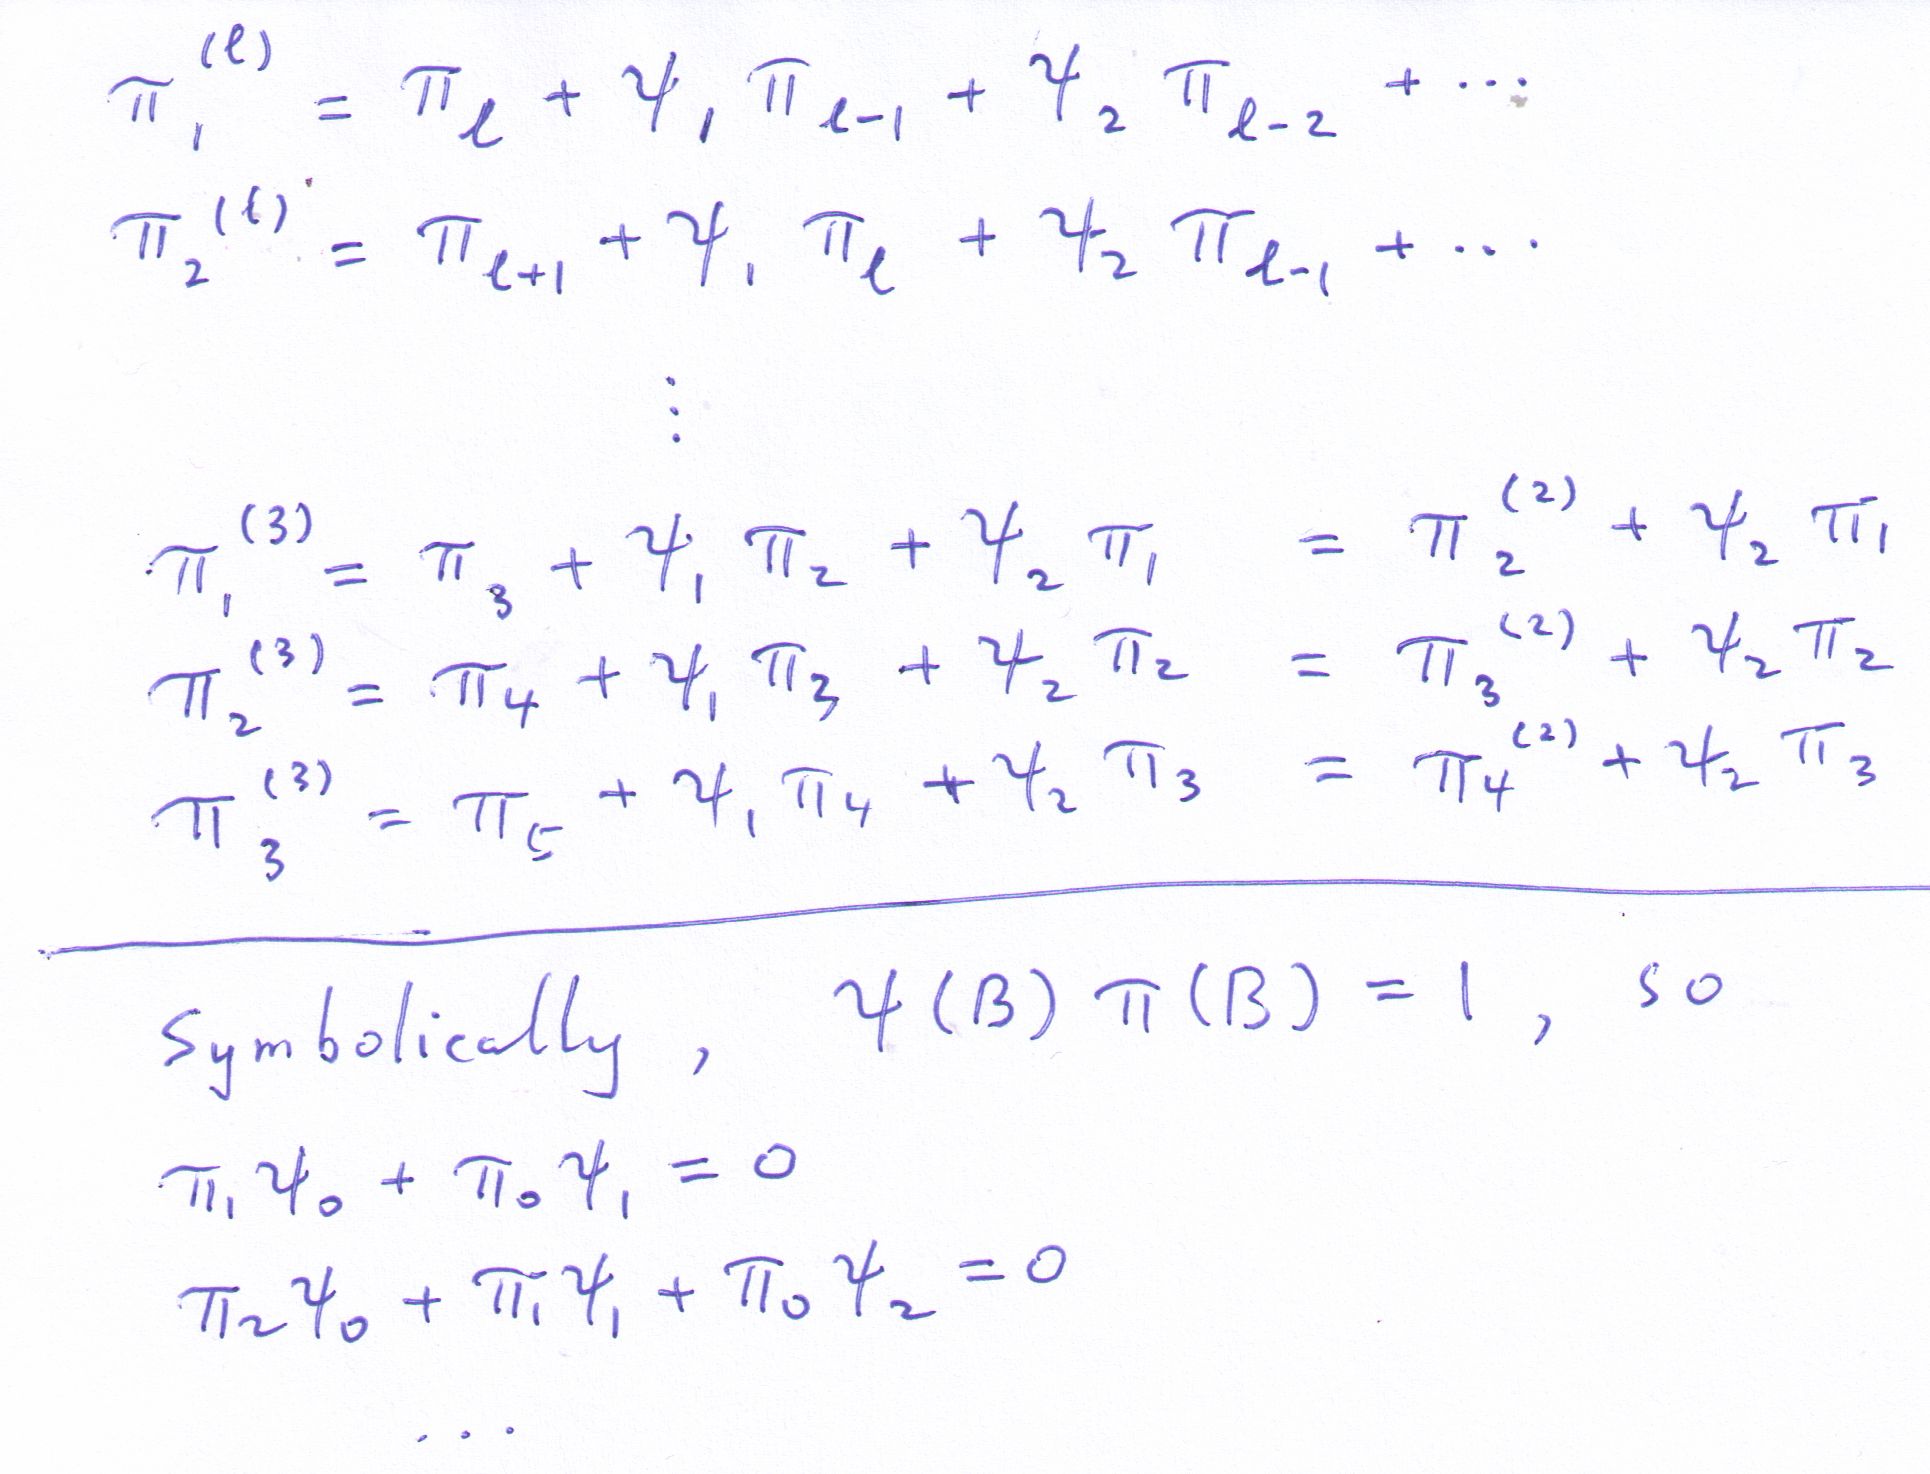 π₁^(ℓ) = π_ℓ + ψ₁ π_{ℓ-1} + ψ₂ π_{ℓ-2} + ...
π₂^(ℓ) = π_{ℓ+1} + ψ₁ π_ℓ + ψ₂ π_{ℓ-1} + ...
⋮
π₁^(3) = π₃ + ψ₁ π₂ + ψ₂ π₁ = π₂^(2) + ψ₂ π₁
π₂^(3) = π₄ + ψ₁ π₃ + ψ₂ π₂ = π₃^(2) + ψ₂ π₂
π₃^(3) = π₅ + ψ₁ π₄ + ψ₂ π₃ = π₄^(2) + ψ₂ π₃
Symbolically, ψ(B) π(B) = 1, so
π₁ψ₀ + π₀ψ₁ = 0
π₂ψ₀ + π₁ψ₁ + π₀ψ₂ = 0
...